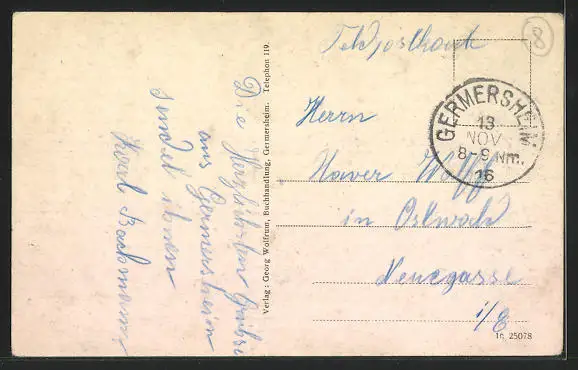 8
Feldpostkarte
GERMERSHEIM
13
NOV
8-9 Nm.
16
Herrn
Xaver Wolff
in Ostwald
Neuegasse
i/E
16 25078
Verlag: Georg Wolfrum, Buchhandlung, Germersheim. Telephon 119.
Die Herzlichsten Grüße
aus Germersheim
sendet ihnen
Karl Backmann